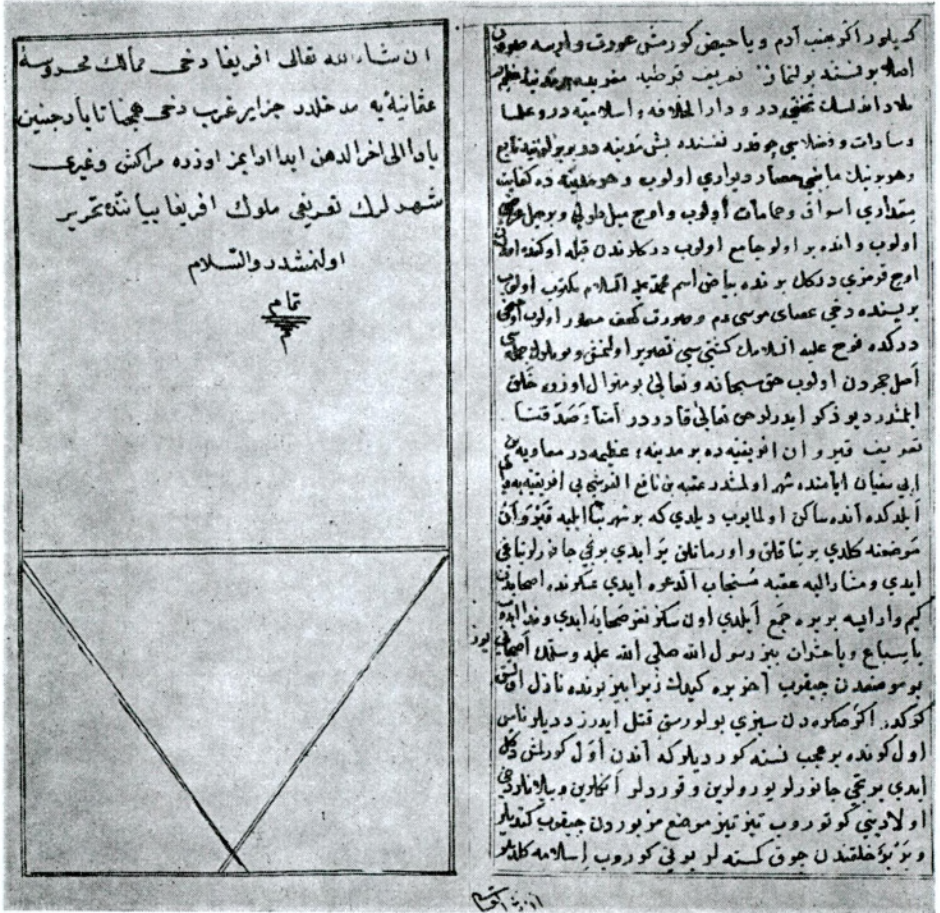 كيلور اكر جنب آدم و يا حيض كورمش عورت وارسه
اصلا بولنماز تعريف قرطبه مغربده بر مدينۀ عظيمه
بلاد اندلسك تختيدر و دار الخلافه و اسلاميه در و علما
و سادات و فضلاسي چوقدر نفسنده بش مدينه در بربرلرينه تابع
و هر برينك مابيني حصار ديواري اولوب و هر مدينه ده كفايت
مقداري اسواق و حمامات اولوب و اوچ ميل طولي و بر ميل عرضي
اولوب و انده بر اولو جامع اولوب ديركلرندن قبله اوكنده اولان
اوچ قرمزي ديركك برنده بياض اسم محمد عليه السلام مكتوب اولوب
بريسنده دخي عصاي موسى و صورت كهف مصور اولوب اوچنجي
ديركده نوح عليه السلامك كشتيسي تصوير اولنمش و بونلر جمله سي
اصل حجردن اولوب حق سبحانه و تعالى بو منوال اوزره خلق
ايلمشدر ديو ذكر ايدرلر حق تعالى قادردر آمنا و صدقنا
تعريف قيروان افريقيه ده بر مدينۀ عظيمه در معاويه بن
ابي سفيان ايامنده شهر اولمشدر عقبه بن نافع القرشي بي افريقيه يه والي
ايلدكده آنده ساكن اولمايوب ديلدي كه بر شهر بنا ايليه قيروان
موضعنه كلدي بر بتاقلق و اورمانلق ير ايدي يرتجي جانورلر يتاغي
ايدي و مشار اليه عقبه مستجاب الدعوه ايدي عسكرنده اصحابدن
كيم وار ايسه بر يره جمع ايلدي اون سكز نفر صحابه ايدي و ندا ايدوب
يا سباع و يا حشرات بيز رسول الله صلى الله عليه وسلمك اصحابي يوز
بو موضعدن چيقوب آخر يره كيدك زيرا بيز بونده نازل اولسق
كركدر اكر صكره دن سيزي بولورسق قتل ايدرز ديديلر ناس
اول كونده بر عجب نسنه كورديلر كه آندن اول كورلمش دكل
ايدي يرتجي جانورلر يورولرين و قوردلر انكلرين و ييلانلر دخي
اولاديني كوتوروب تيز تيز موضع مزبوردن چيقوب كتديلر
و بربر خلقندن چوق كمسنه لر بوني كوروب اسلامه كلديلر
ان شاء الله تعالى افريقا دخي ممالك محروسۀ
عثمانيه يه مدخلدر جزاير غرب دخي همچنان يا رب جنين
باد الى اخر الدهن ايدا ادايمز اوزره مراكش و غيري
شهرلرك تعريفي ملوك افريقا بياننده تحرير
اولنمشدر والسلام
تمام
م